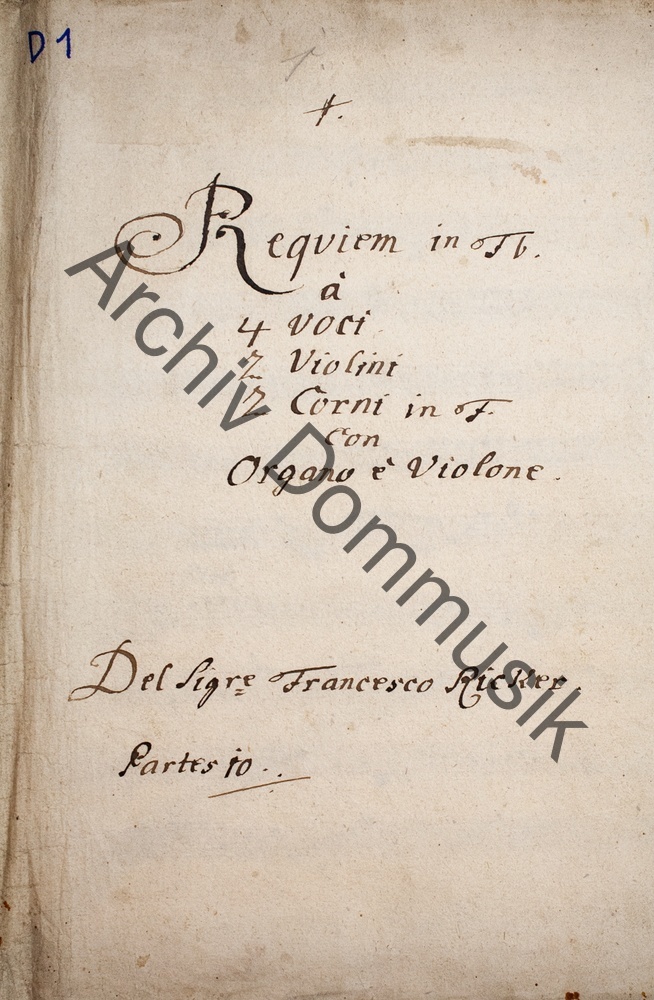 D 1
1.
Requiem in Fb.
à
4 voci
2 Violini
2 Corni in F.
con
Organo è Violone.
Del Sigre Francesco Ricker.
Partes 10.
Archiv Dommusik